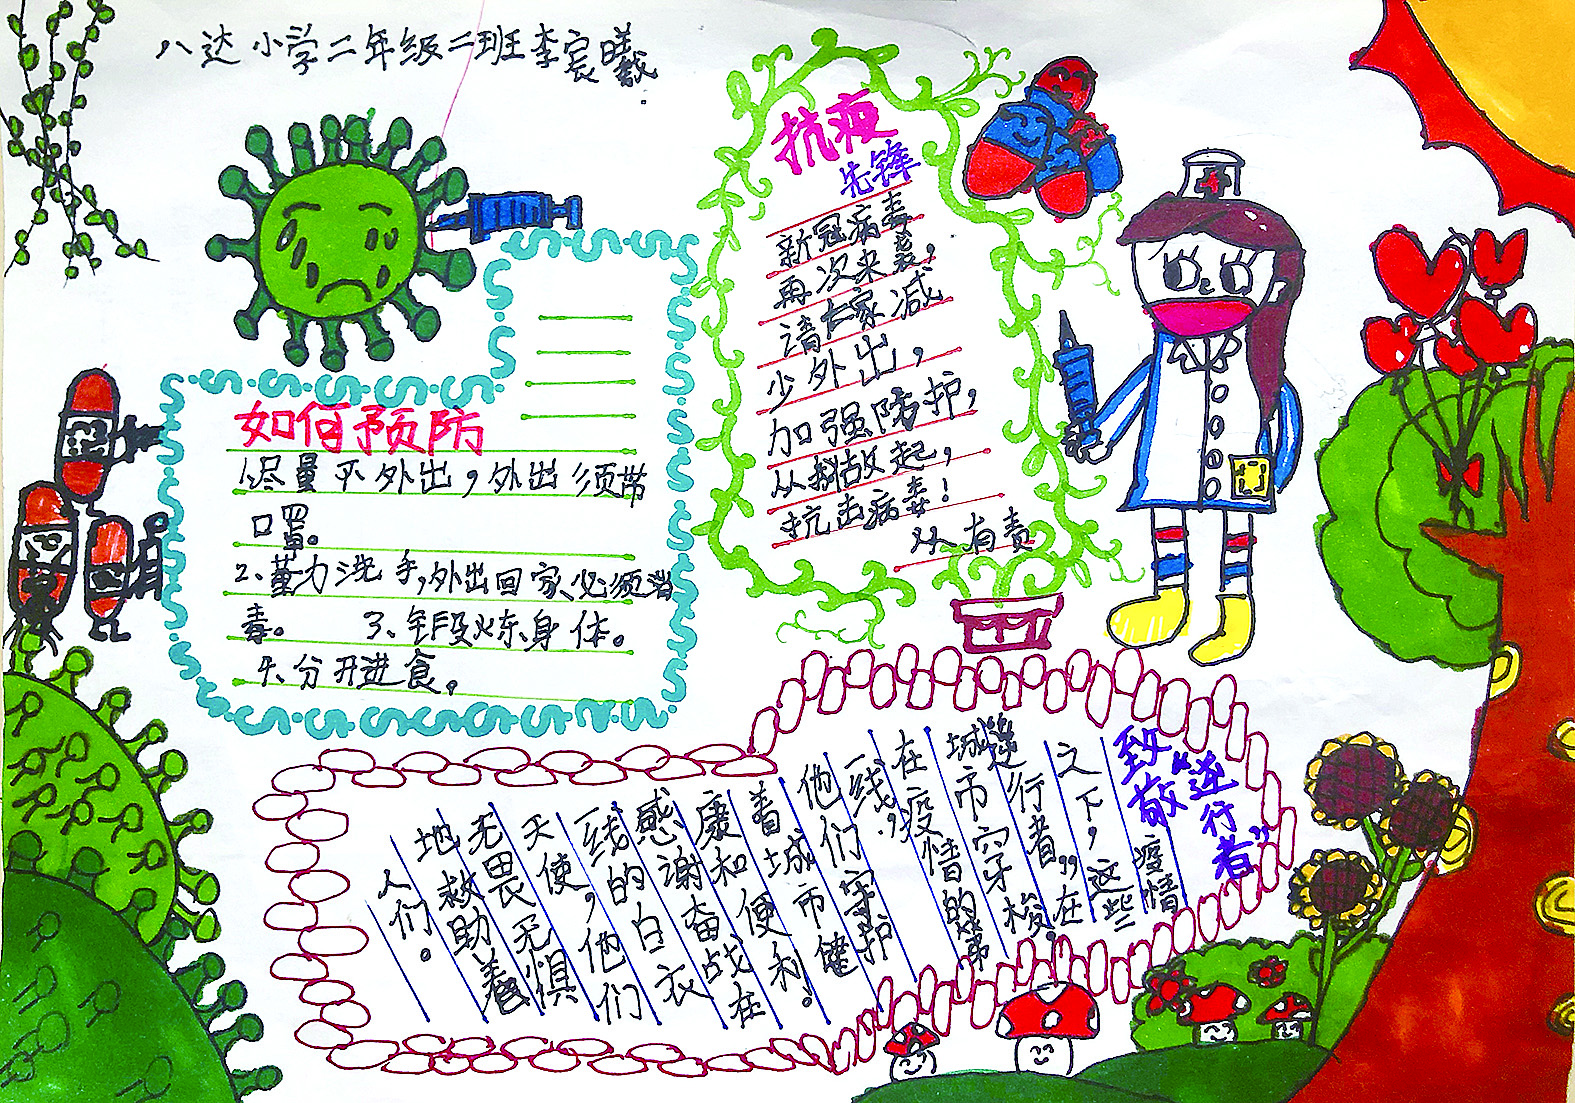 八达小学二年级二班李宸曦
如何预防
1.尽量不外出，外出须带
口罩。
2、董力洗手，外出回家、必须消
毒。 3、年段炼身体。
4、分开进食。
抗疫
先锋
新冠病毒
再次来袭，
请大家减
少外出，
加强防护，
从我做起，
抗击病毒！
从有责
致敬“逆行者”
疫情
之下，这些
“逆行者”在
城市穿梭。
在疫情的第
一线，
他们守护
着城市健
康和便利。
感谢奋战在
一线的白衣
天使，他们
无畏无惧
地救助着
人们。